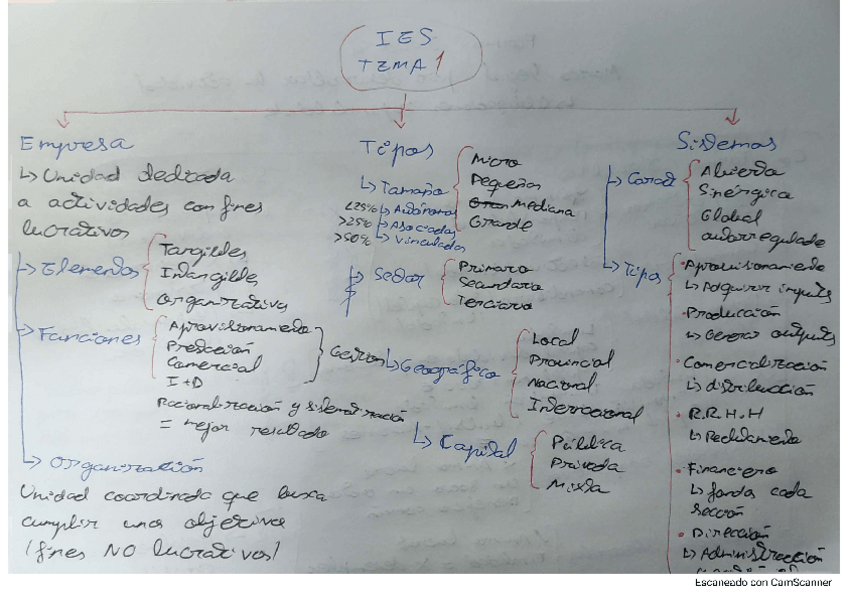 IES
TEMA 1
Empresa
↳ Unidad dedicada
a actividades con fines
lucrativos
→ Elementos
Tangibles
Intangibles
Organizativos
→ Funciones
Aprovisionamiento
Producción
Comercial
I+D
Gestion
Racionalización y sistematización
= mejor resultado
↳ Organización
Unidad coordinada que busca
cumplir unos objetivos
(fines NO lucrativos)
Tipos
↳ Tamaño
Micro
Pequeñas
Mediana
Grande
<25% → Autónomas
>25% → Asociadas
>50% → Vinculadas
→ Sector
Primario
Secundario
Terciario
↳ Geográfico
Local
Provincial
Nacional
Internacional
↳ Capital
Pública
Privada
Mixta
Sistemas
→ Caract
Abierta
Sinérgica
Global
autorregulado
→ Tipos
• Aprovisionamiento
↳ Adquirir inputs
• Producción
↳ Generar outputs
• Comercialización
↳ distribución
• R.R.H.H
↳ Reclutamiento
• Financiero
↳ fondos cada
sección
• Dirección
↳ Administración
Escaneado con CamScanner